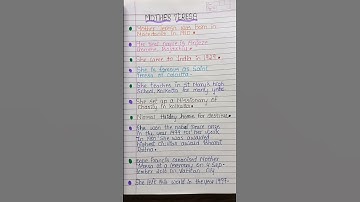 MOTHER TERESA
Mother Teresa was born in
Macedonia in 1910.
Her real name is Anjeze
Gonxhe Bojaxhiu
She came to India in 1929.
She is famous as Saint
Teresa of Calcutta.
She teaches in St Mary's High
School, Kolkata for many years
She set up a Missionary of
Charity in Kolkata.
Nirmal Hriday home for
She won the nobel peace prize
in the year 1979 for her work
In 1980 she was awarded
highest civilian award Bharat
Ratna.
Pope Francis canonised Mother
Teresa at a ceremony on 4 Sep-
tember 2016 in Vatican City
She left this world in the year 1997.